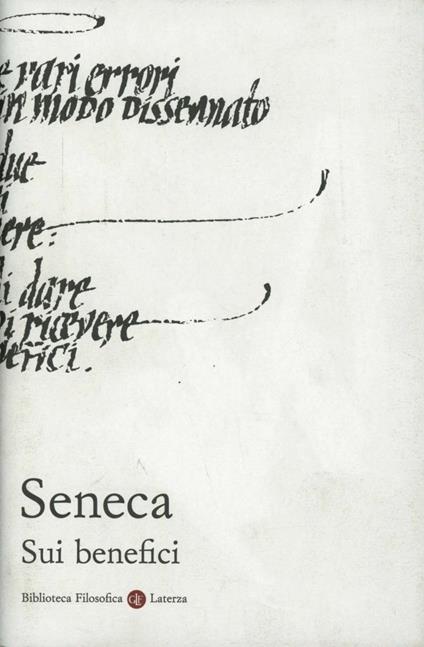 e rari errori
in modo dissennato
due
i
ere:
di dare
di ricevere
efici.
Seneca
Sui benefici
Biblioteca Filosofica GLF Laterza